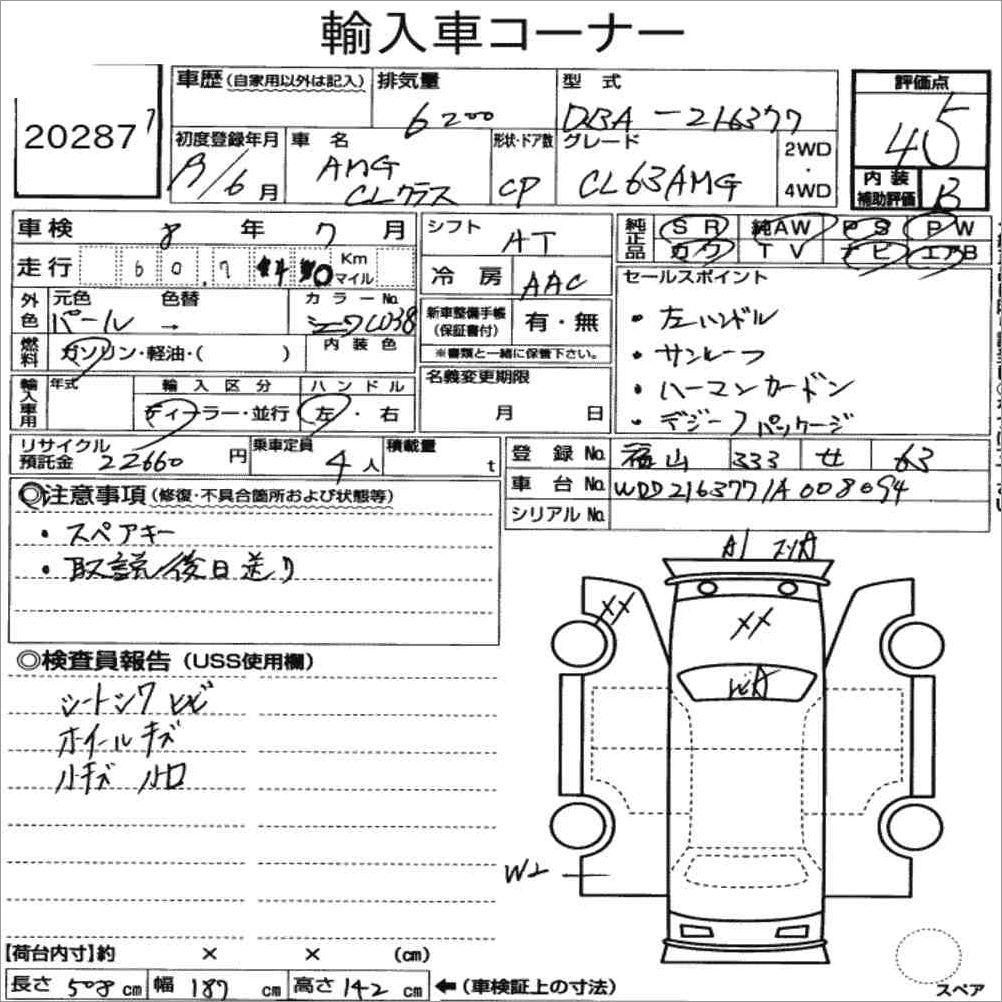 輸入車コーナー
20287
7
車歴(自家用以外は記入)
排気量
6200
型式
DBA-216377
評価点
4.5
初度登録年月
19/6月
車名
AMG
CLクラス
形状・ドア数
CP
グレード
CL63AMG
2WD
・
4WD
内装
補助評価
B
車検 8年 7月
走行
60,7
Km
マイル
シフト AT
冷房 AAC
純正品
SR 純AW PS PW
カワ TV ナビ エアB
外色
元色 色替
パール →
カラーNo.
内装色
燃料
ガソリン・軽油・( )
新車整備手帳
(保証書付)
有・無
※書類と一緒に保管下さい。
セールスポイント
・左ハンドル
・サンルーフ
・ハーマンカードン
・デジーノパッケージ
輸入車用
年式
輸入区分
ディーラー・並行
ハンドル
左・右
名義変更期限
月 日
リサイクル
預託金 22660円
乗車定員
4人
積載量
t
登録No. 福山 333 せ 63
車台No. WDD2163771A008094
シリアルNo.
◎注意事項(修復・不具合箇所および状態等)
・スペアキー
・取説/後日送り
◎検査員報告(USS使用欄)
シートシワ ヒビ
ホイールキズ
小キズ 小凹
A1
XX
XX
W2
【荷台内寸】約 × × (cm)
長さ 508cm 幅 187cm 高さ 142cm ←(車検証上の寸法)
スペア